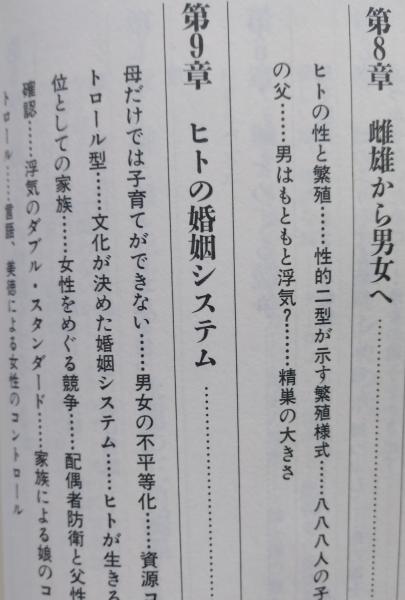 第8章 雌雄から男女へ……………………
ヒトの性と繁殖……性的二型が示す繁殖様式……八八八人の子
の父……男はもともと浮気?……精巣の大きさ
第9章 ヒトの婚姻システム……………………
母だけでは子育てができない……男女の不平等化……資源コ
トロール型……文化が決めた婚姻システム……ヒトが生きる
位としての家族……女性をめぐる競争……配偶者防衛と父性
確認……浮気のダブル・スタンダード……家族による娘のコ
トロール……言語、美徳による女性のコントロール